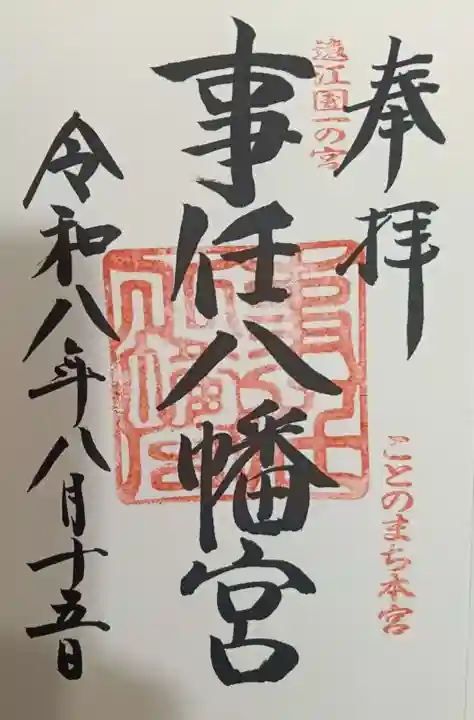 奉拝
遠江国一の宮
ことのまち本宮
事任八幡宮
令和八年八月十五日